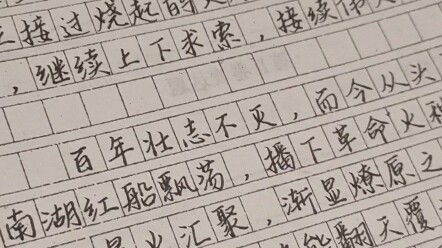 接过烧起的
，继续上下求索，接续
百年壮志不灭，而今从头
南湖红船飘荡，播下革命火种
汇聚，渐显燎原之
翻天覆